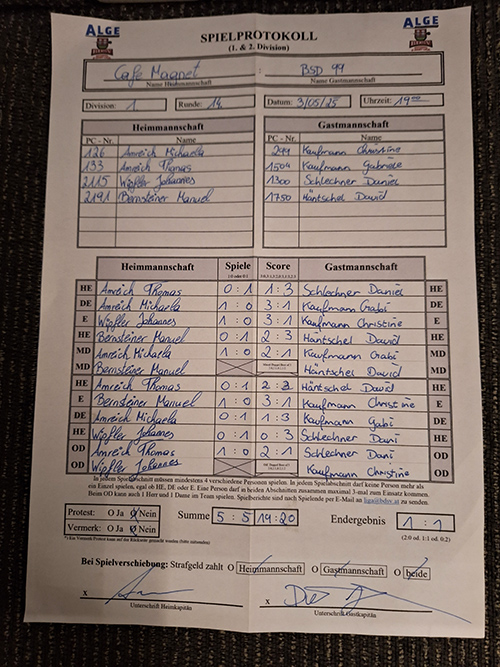 ALGE
ALGE
SPIELPROTOKOLL
(1. & 2. Division)
Café Magnet : BSD 99
Name Heimmannschaft Name Gastmannschaft
Division: 1 Runde: 14 Datum: 3/05/25 Uhrzeit: 19 00
Heimmannschaft Gastmannschaft
PC - Nr. Name PC - Nr. Name
126 Amreich Michaela 299 Kaufmann Christine
133 Amreich Thomas 1504 Kaufmann Gabriele
2115 Wipfler Johannes 1300 Schlechner Daniel
2191 Bernsteiner Manuel 1750 Häntschel David
Heimmannschaft Spiele Score Gastmannschaft
1:0 oder 0:1
HE Amreich Thomas 0 : 1 1 : 3 Schlechner Daniel HE
DE Amreich Michaela 1 : 0 3 : 1 Kaufmann Gabi DE
E Wipfler Johannes 1 : 0 3 : 1 Kaufmann Christine E
HE Bernsteiner Manuel 0 : 1 2 : 3 Häntschel David HE
MD Amreich Michaela 1 : 0 2 : 1 Kaufmann Gabi MD
MD Bernsteiner Manuel Häntschel David MD
HE Amreich Thomas 0 : 1 2 : 3 Häntschel David HE
E Bernsteiner Manuel 1 : 0 3 : 1 Kaufmann Christine E
DE Amreich Michaela 0 : 1 1 : 3 Kaufmann Gabi DE
HE Wipfler Johannes 0 : 1 0 : 3 Schlechner Dani HE
OD Amreich Thomas 1 : 0 2 : 1 Schlechner Dani OD
OD Wipfler Johannes Kaufmann Christine OD
In jedem Spielabschnitt müssen mindestens 4 verschiedene Personen spielen. In jedem Spielabschnitt darf keine Person mehr als
ein Einzel spielen, egal ob HE, DE oder E. Eine Person darf in beiden Abschnitten zusammen maximal 3-mal zum Einsatz kommen.
Beim OD kann auch 1 Herr und 1 Dame im Team spielen. Spielbericht sind nach Spielende per E-Mail an liga@bdsv.at zu senden.
Protest: O Ja O Nein Summe 5 : 5 19 : 20 Endergebnis 1 : 1
Vermerk: O Ja O Nein (2:0 od. 1:1 od. 0:2)
Bei Spielverschiebung: Strafgeld zahlt O Heimmannschaft O Gastmannschaft O beide
x x
Unterschrift Heimkapitän Unterschrift Gastkapitän